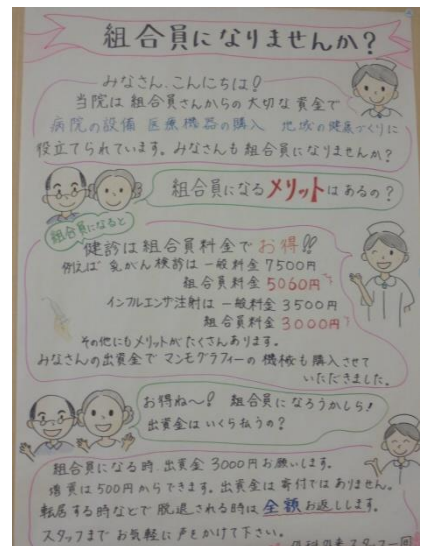 組合員になりませんか?
みなさん、こんにちは!
当院は組合員さんからの大切な資金で
病院の設備 医療機器の購入 地域の健康づくりに
役立てられています。みなさんも組合員になりませんか?
組合員になるメリットはあるの?
組合員になると
健診は組合員料金でお得!!
例えば 乳がん検診は一般料金7500円
組合員料金5060円
インフルエンザ注射は一般料金3500円
組合員料金3000円
その他にもメリットがたくさんあります。
みなさんの出資金でマンモグラフィーの機械も購入させて
いただきました。
お得ね〜! 組合員になろうかしら!
出資金はいくら払うの?
組合員になる時、出資金3000円お願いします。
増資は500円からできます。出資金は寄付ではありません。
転居する時などで脱退される時は全額お返しします。
スタッフまでお気軽に声をかけて下さい。
外科外来スタッフ一同